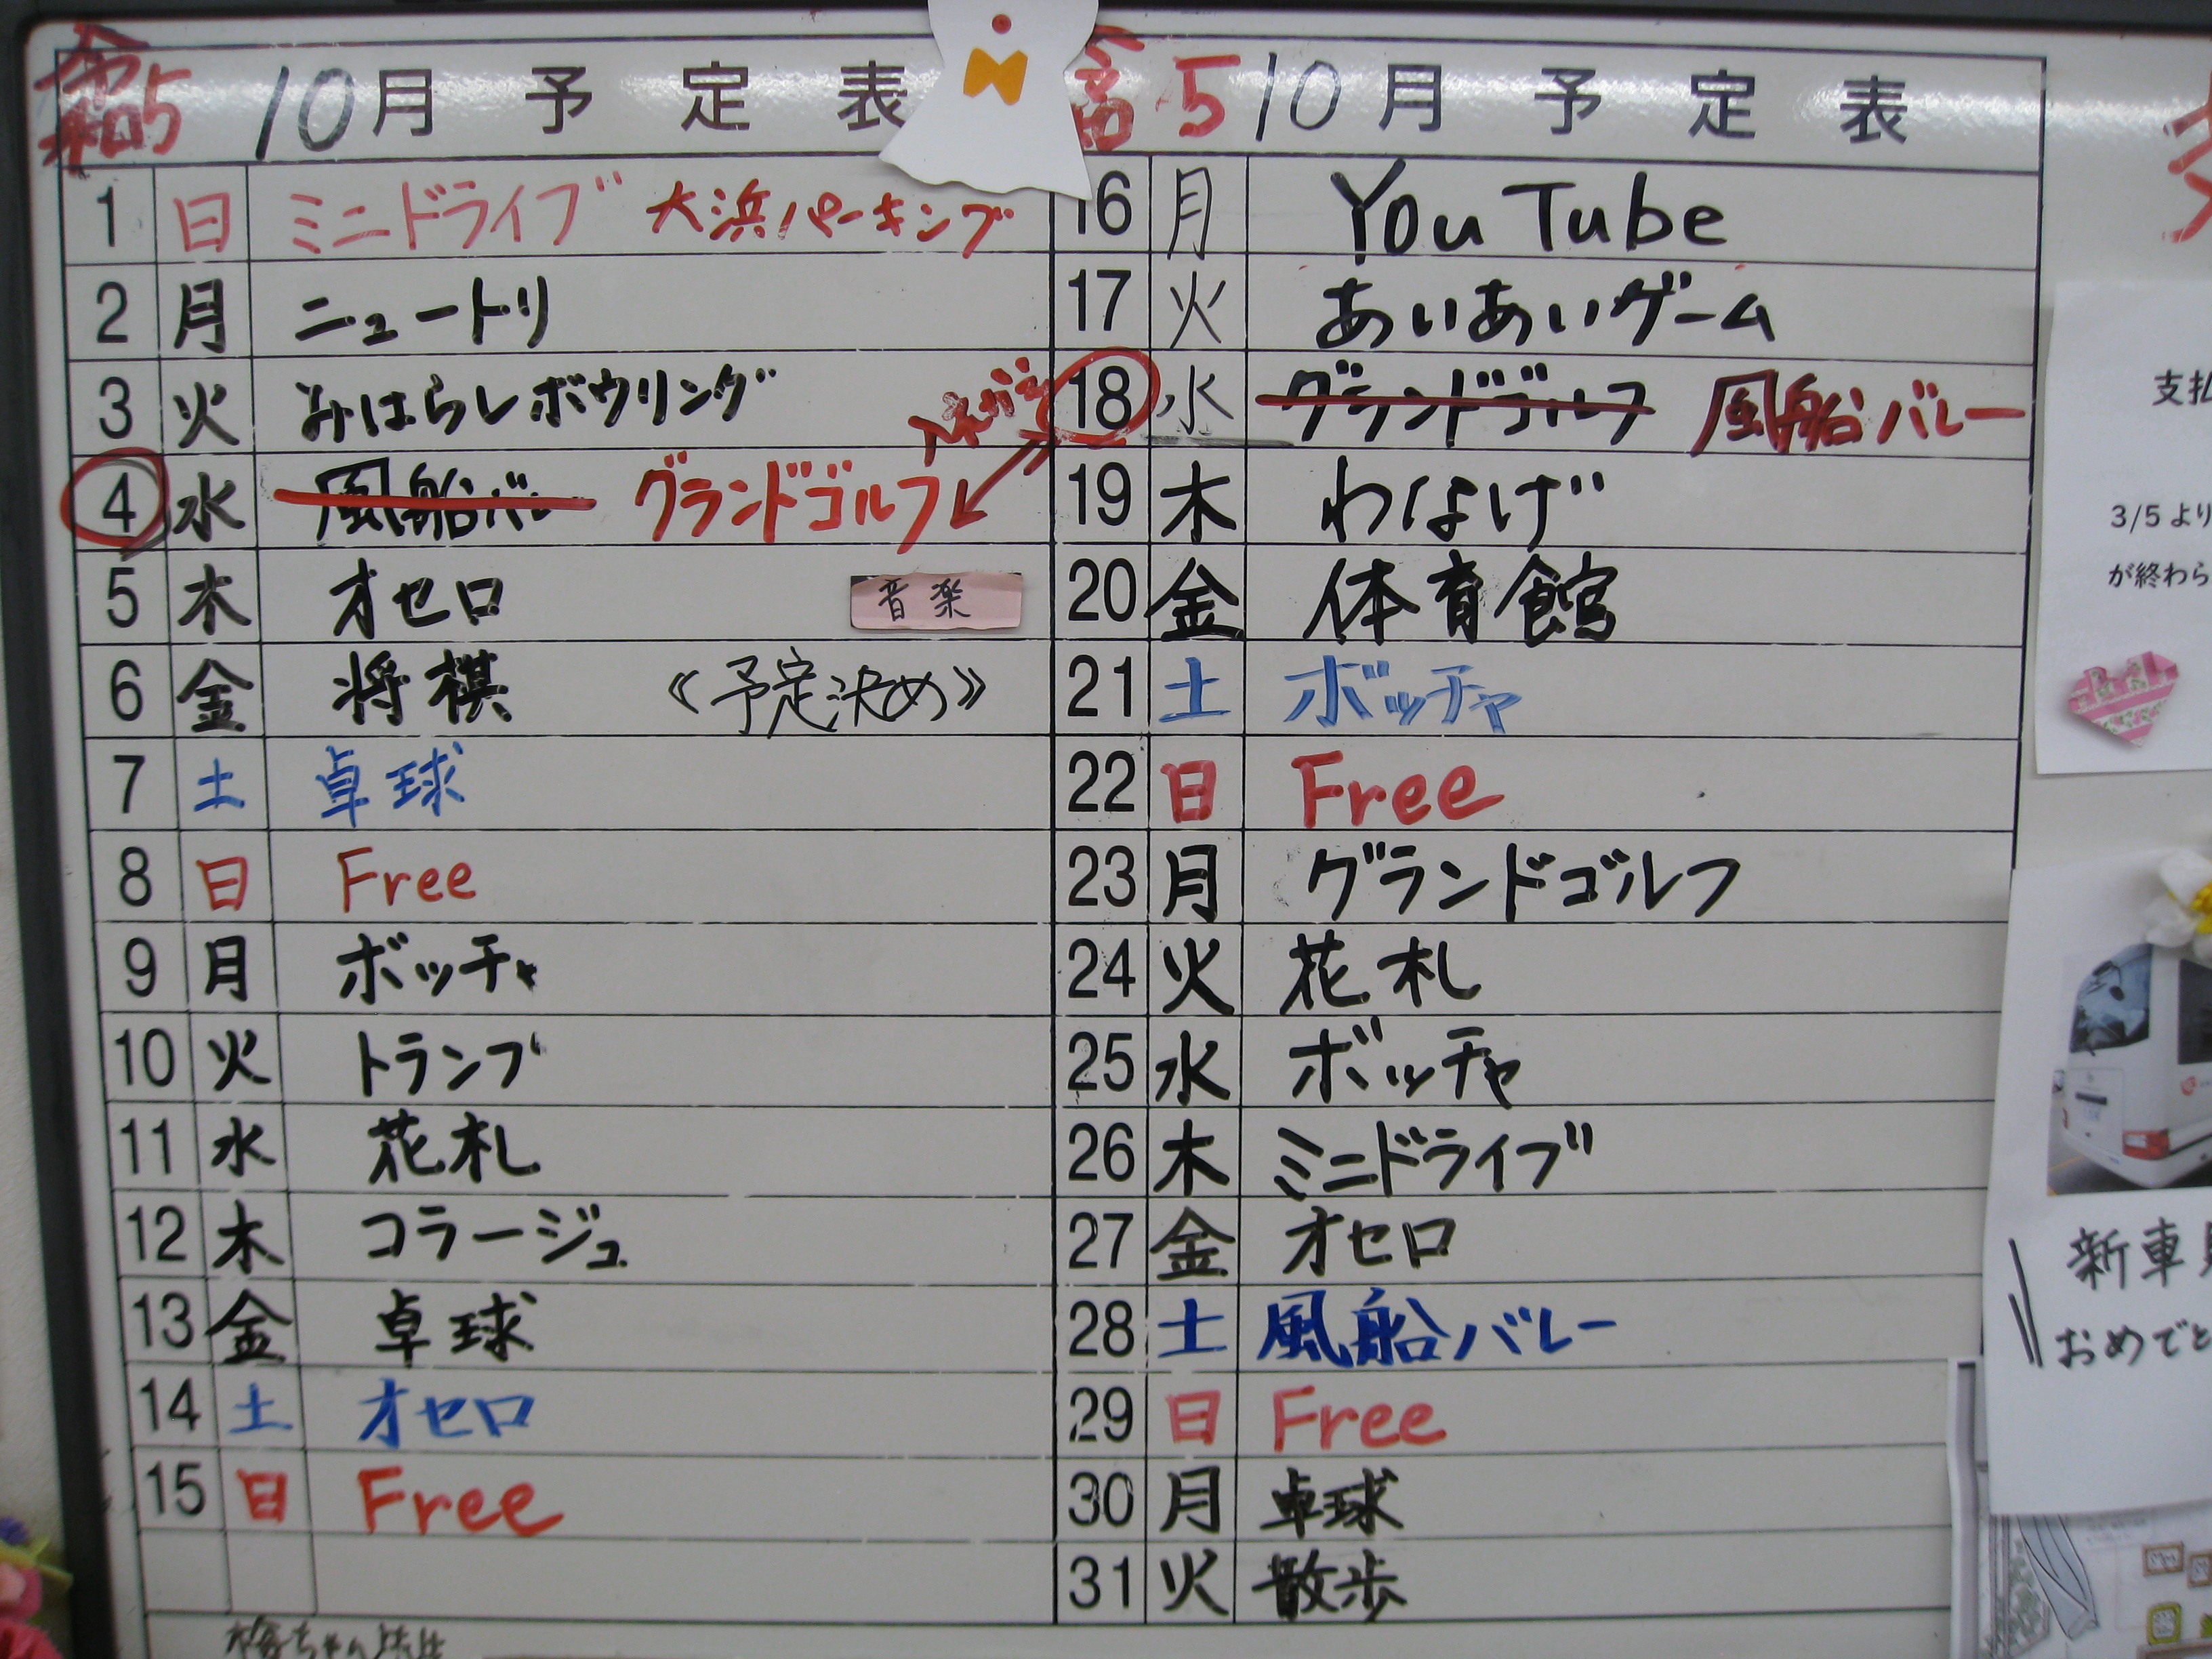 令和5 10月予定表
1 日 ミニドライブ 大浜パーキング
2 月 ニュートリ
3 火 みはらしボウリング
4 水 風船バレー グランドゴルフ
5 木 オセロ 音楽
6 金 将棋 《予定決め》
7 土 卓球
8 日 Free
9 月 ボッチャ
10 火 トランプ
11 水 花札
12 木 コラージュ
13 金 卓球
14 土 オセロ
15 日 Free
5 10月予定表
16 月 YouTube
17 火 あいあいゲーム
入れかえ
18 水 グランドゴルフ 風船バレー
19 木 わなげ
20 金 体育館
21 土 ボッチャ
22 日 Free
23 月 グランドゴルフ
24 火 花札
25 水 ボッチャ
26 木 ミニドライブ
27 金 オセロ
28 土 風船バレー
29 日 Free
30 月 卓球
31 火 散歩
支払
3/5より
が終わら
新車
おめでと